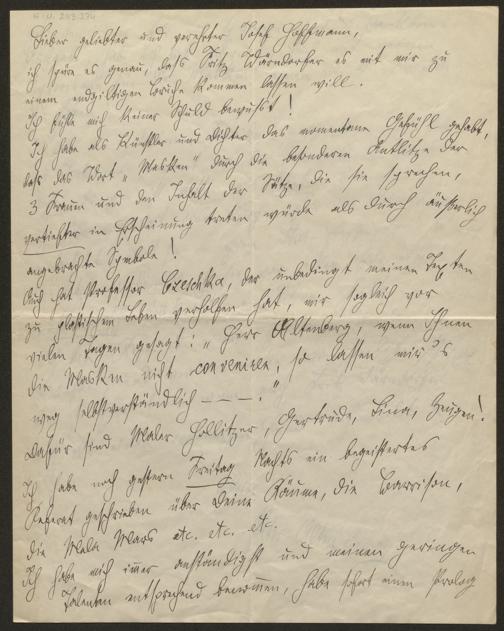 H.I.N. 203.274
Lieber geliebter und verehrter Josef Hoffmann,
ich spüre es genau, dass Fritz Wärndorfer es mit mir zu
einem endgiltigen Bruche kommen lassen will.
Ich fühle mich keiner Schuld bewusst!
Ich habe als Künstler und Dichter das momentane Gefühl gehabt,
dass das Wort „Masken" durch die besonderen Antlitze der
3 Frauen und den Inhalt der Sätze, die sie sprechen,
vertiefter in Erscheinung treten würde als durch äußerlich
angebrachte Symbole!
Auch hat Professor Czeschka, der unbedingt meinen Texten
zu plastischem Leben verholfen hat, mir sogleich vor
vielen Tagen gesagt: „Herr Altenberg, wenn Ihnen
die Masken nicht conveniren, so lassen wir's
weg selbstverständlich — — —."
Dafür sind Maler Hollitzer, Gertrude, Lina, Zeugen!
Ich habe noch gestern Freitag Nachts ein begeistertes
Referat geschrieben über Deine Räume, die Barrison,
die Mela Mars etc. etc. etc.
Ich habe mich immer anständigst und meinen geringen
Talenten entsprechend benommen, habe sofort einen Prolog